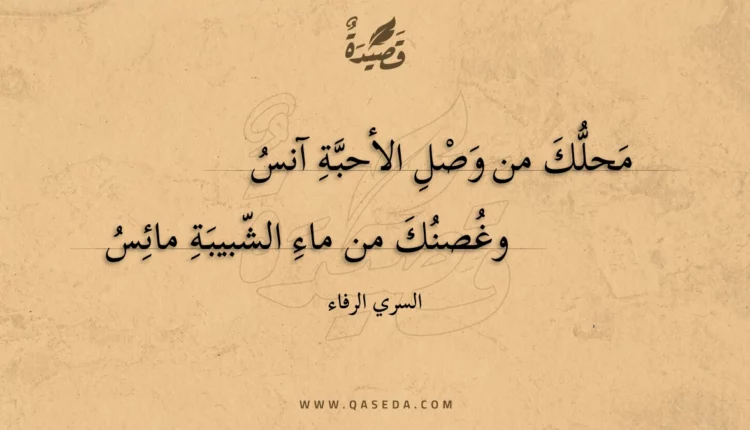 قَصِيدَةٌ
مَحلُّكَ من وَصْلِ الأحبَّةِ آنسُ
وغُصنُكَ من ماءِ الشّبيبَةِ مائِسُ
السري الرفاء
WWW.QASEDA.COM